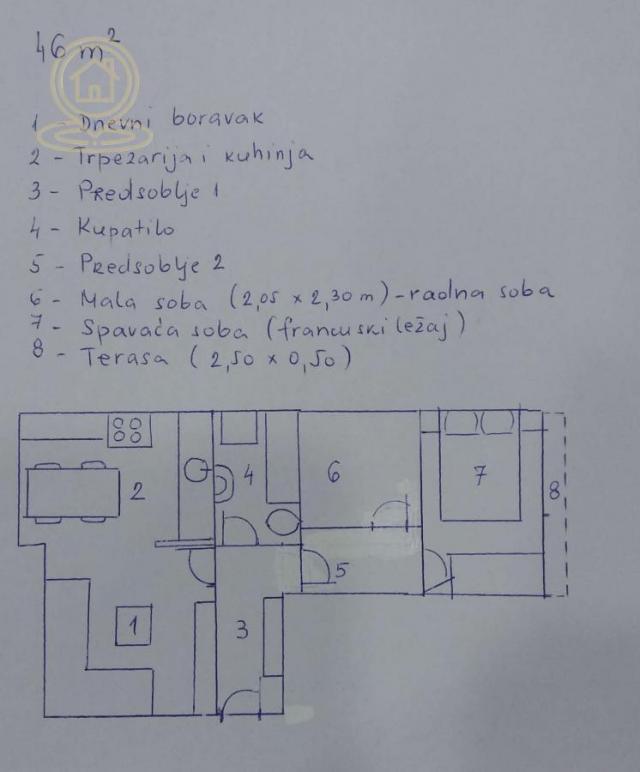 46 m²
1 - Dnevni boravak
2 - Trpezarija i kuhinja
3 - Predsoblje 1
4 - Kupatilo
5 - Predsoblje 2
6 - Mala soba (2,05 x 2,30 m) - radna soba
7 - Spavaća soba (francuski ležaj)
8 - Terasa (2,50 x 0,50)
4
6
7
2
8
5
1
3